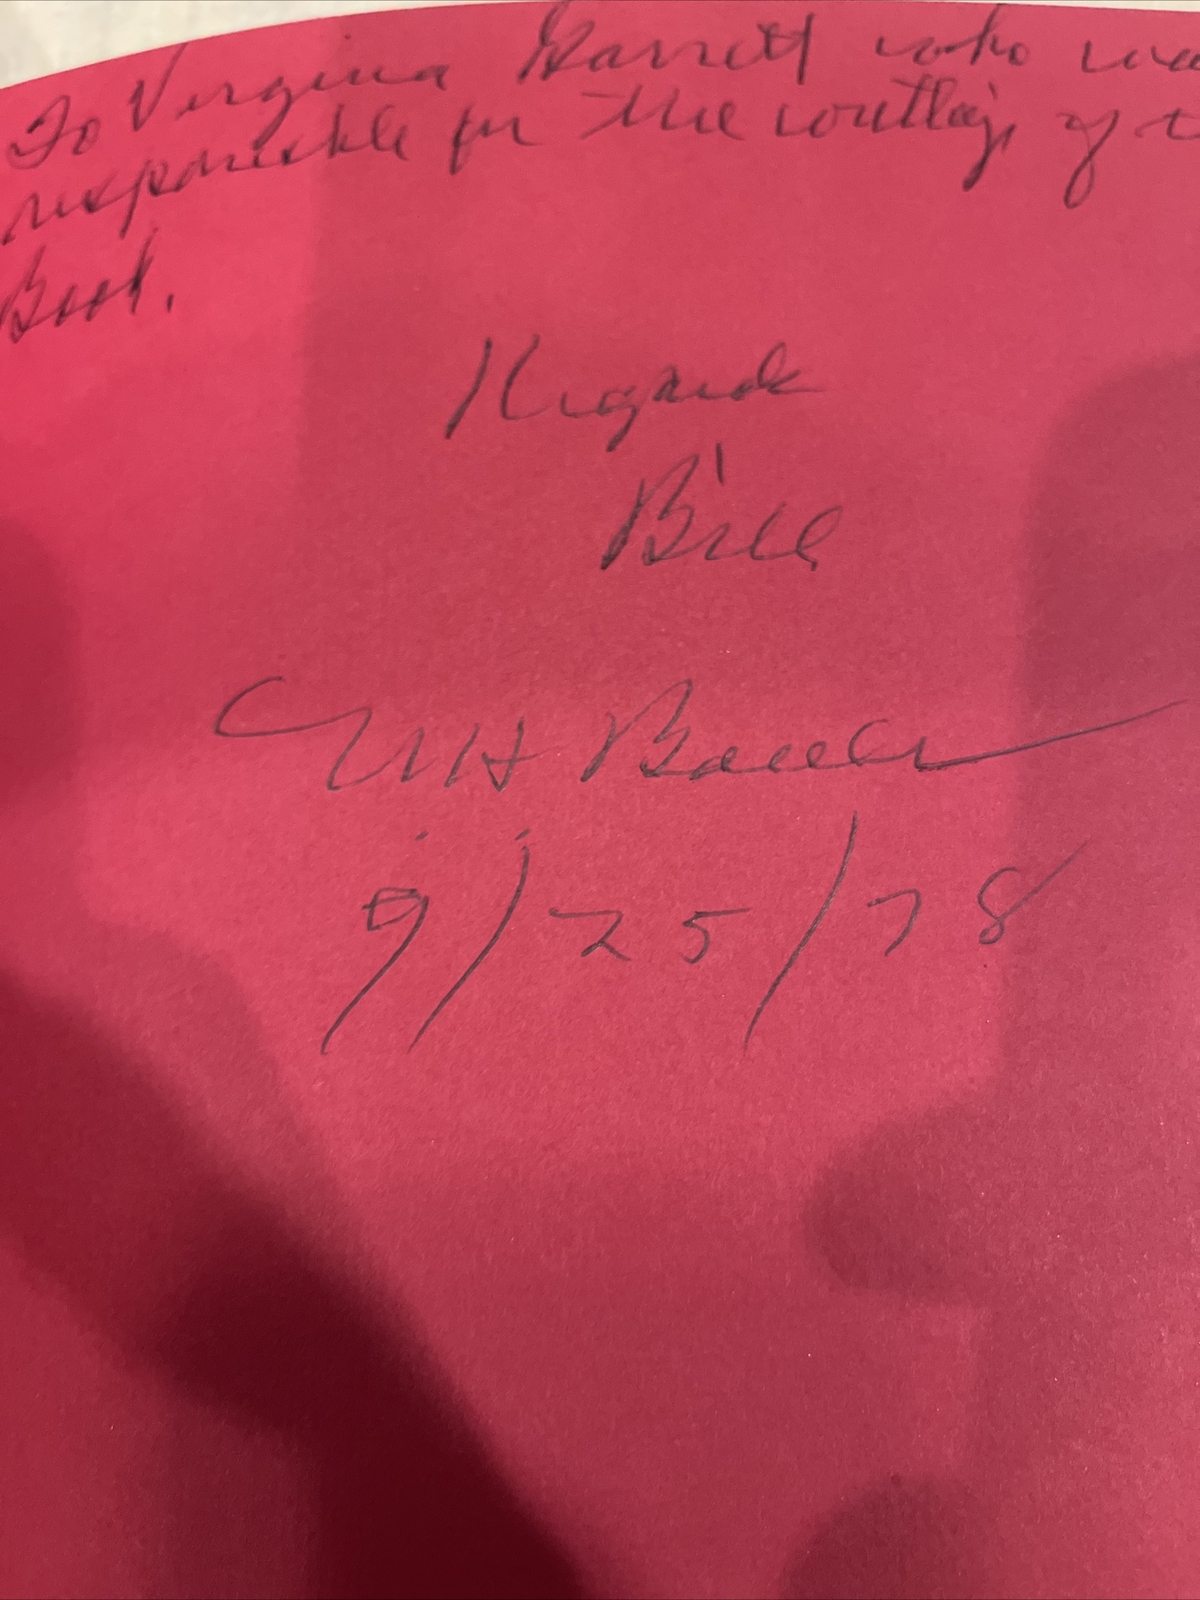 To Virginia Garrett who wa
responsible for the writing of t
Book.
Regards
Bill
WH
9/25/78